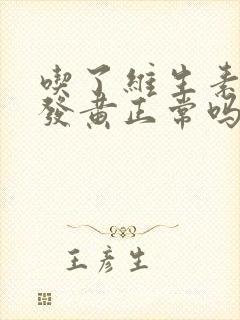 喫了維生素
發黃正常嗎
王彥生